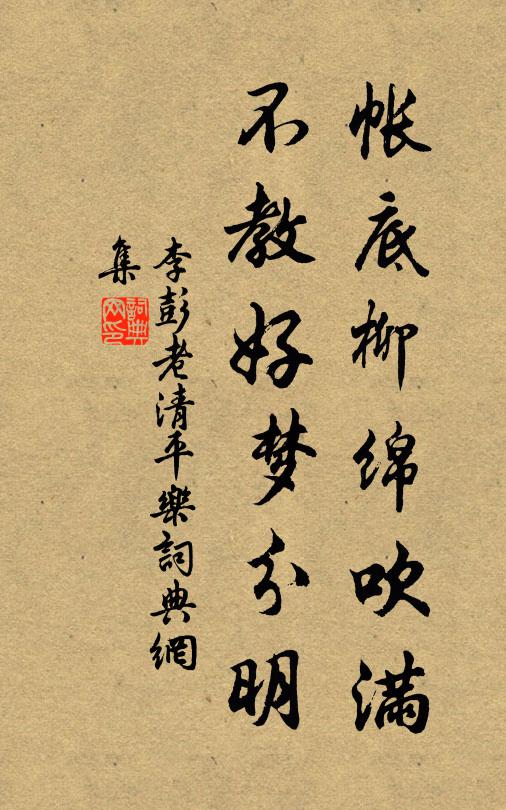 帐底柳绵吹满
不教好梦分明
李彭老清平樂詞典網
集
詞典
网印